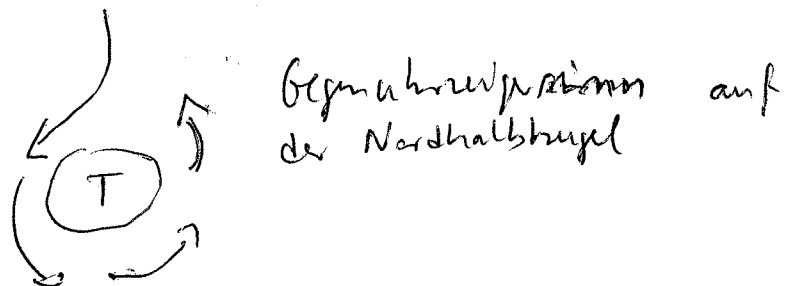 Gegenuhrzeigersinn auf
der Nordhalbkugel
T